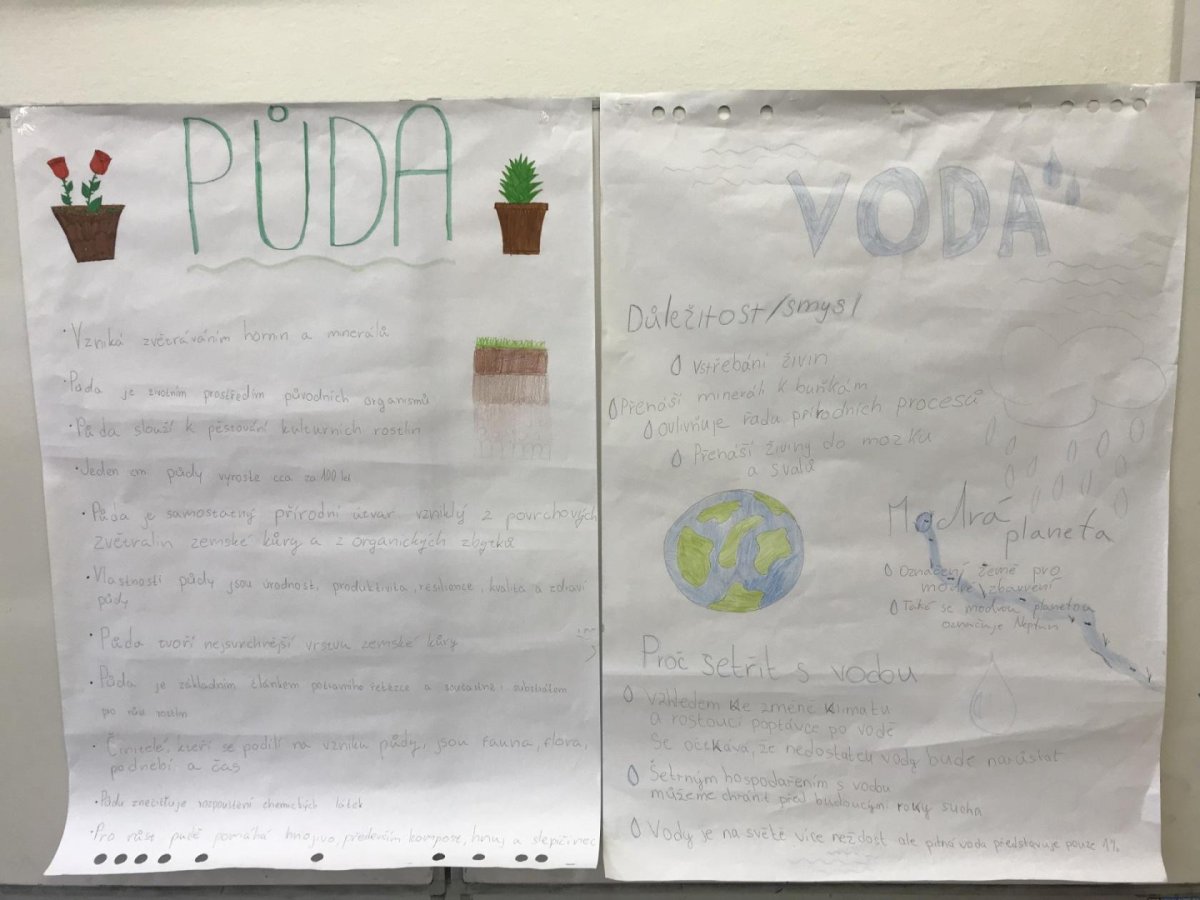 PŮDA
· Vzniká zvětráváním hornin a minerálů
· Půda je životním prostředím původních organismů
· Půda slouží k pěstování kulturních rostlin
· Jeden cm půdy vyroste cca za 100 let
· Půda je samostatný přírodní útvar vzniklý z povrchových
zvětralin zemské kůry a z organických zbytků
· Vlastnosti půdy jsou úrodnost, produktivita, resilience, kvalita a zdraví
půdy
· Půda tvoří nejsvrchnější vrstvu zemské kůry
· Půda je základním článkem potravního řetězce a současně i substrátem
pro růst rostlin
· Činitelé, kteří se podílí na vzniku půdy, jsou fauna, flora,
podnebí a čas
· Půdu znečišťuje rozpouštění chemických látek
· Pro růst půdě pomáhá hnojivo, především kompost, hnůj a slepičinec
VODA
Důležitost/smysl
Vstřebání živin
Přenáší minerály k buňkám
Ovlivňuje řada přírodních procesů
Přenáší živiny do mozku
a svalů
Modrá
planeta
Označení země pro
modré zbarvení
Také se modrou planetou
označuje Neptun
Proč šetřit s vodou
Vzhledem ke změně klimatu
a rostoucí poptávce po vodě
se očekává, že nedostatek vody bude narůstat
Šetrným hospodařením s vodou
můžeme chránit před budoucími roky sucha
Vody je na světě více než dost ale pitná voda představuje pouze 1%